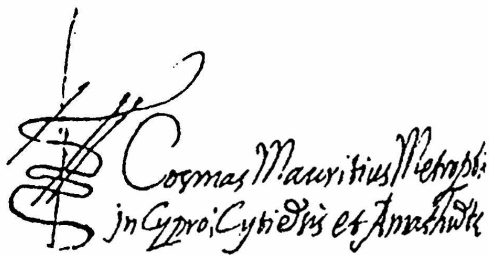 Cosmas Mauritius Metropoli
in Cypro, Cytiēsis et Amathūtis